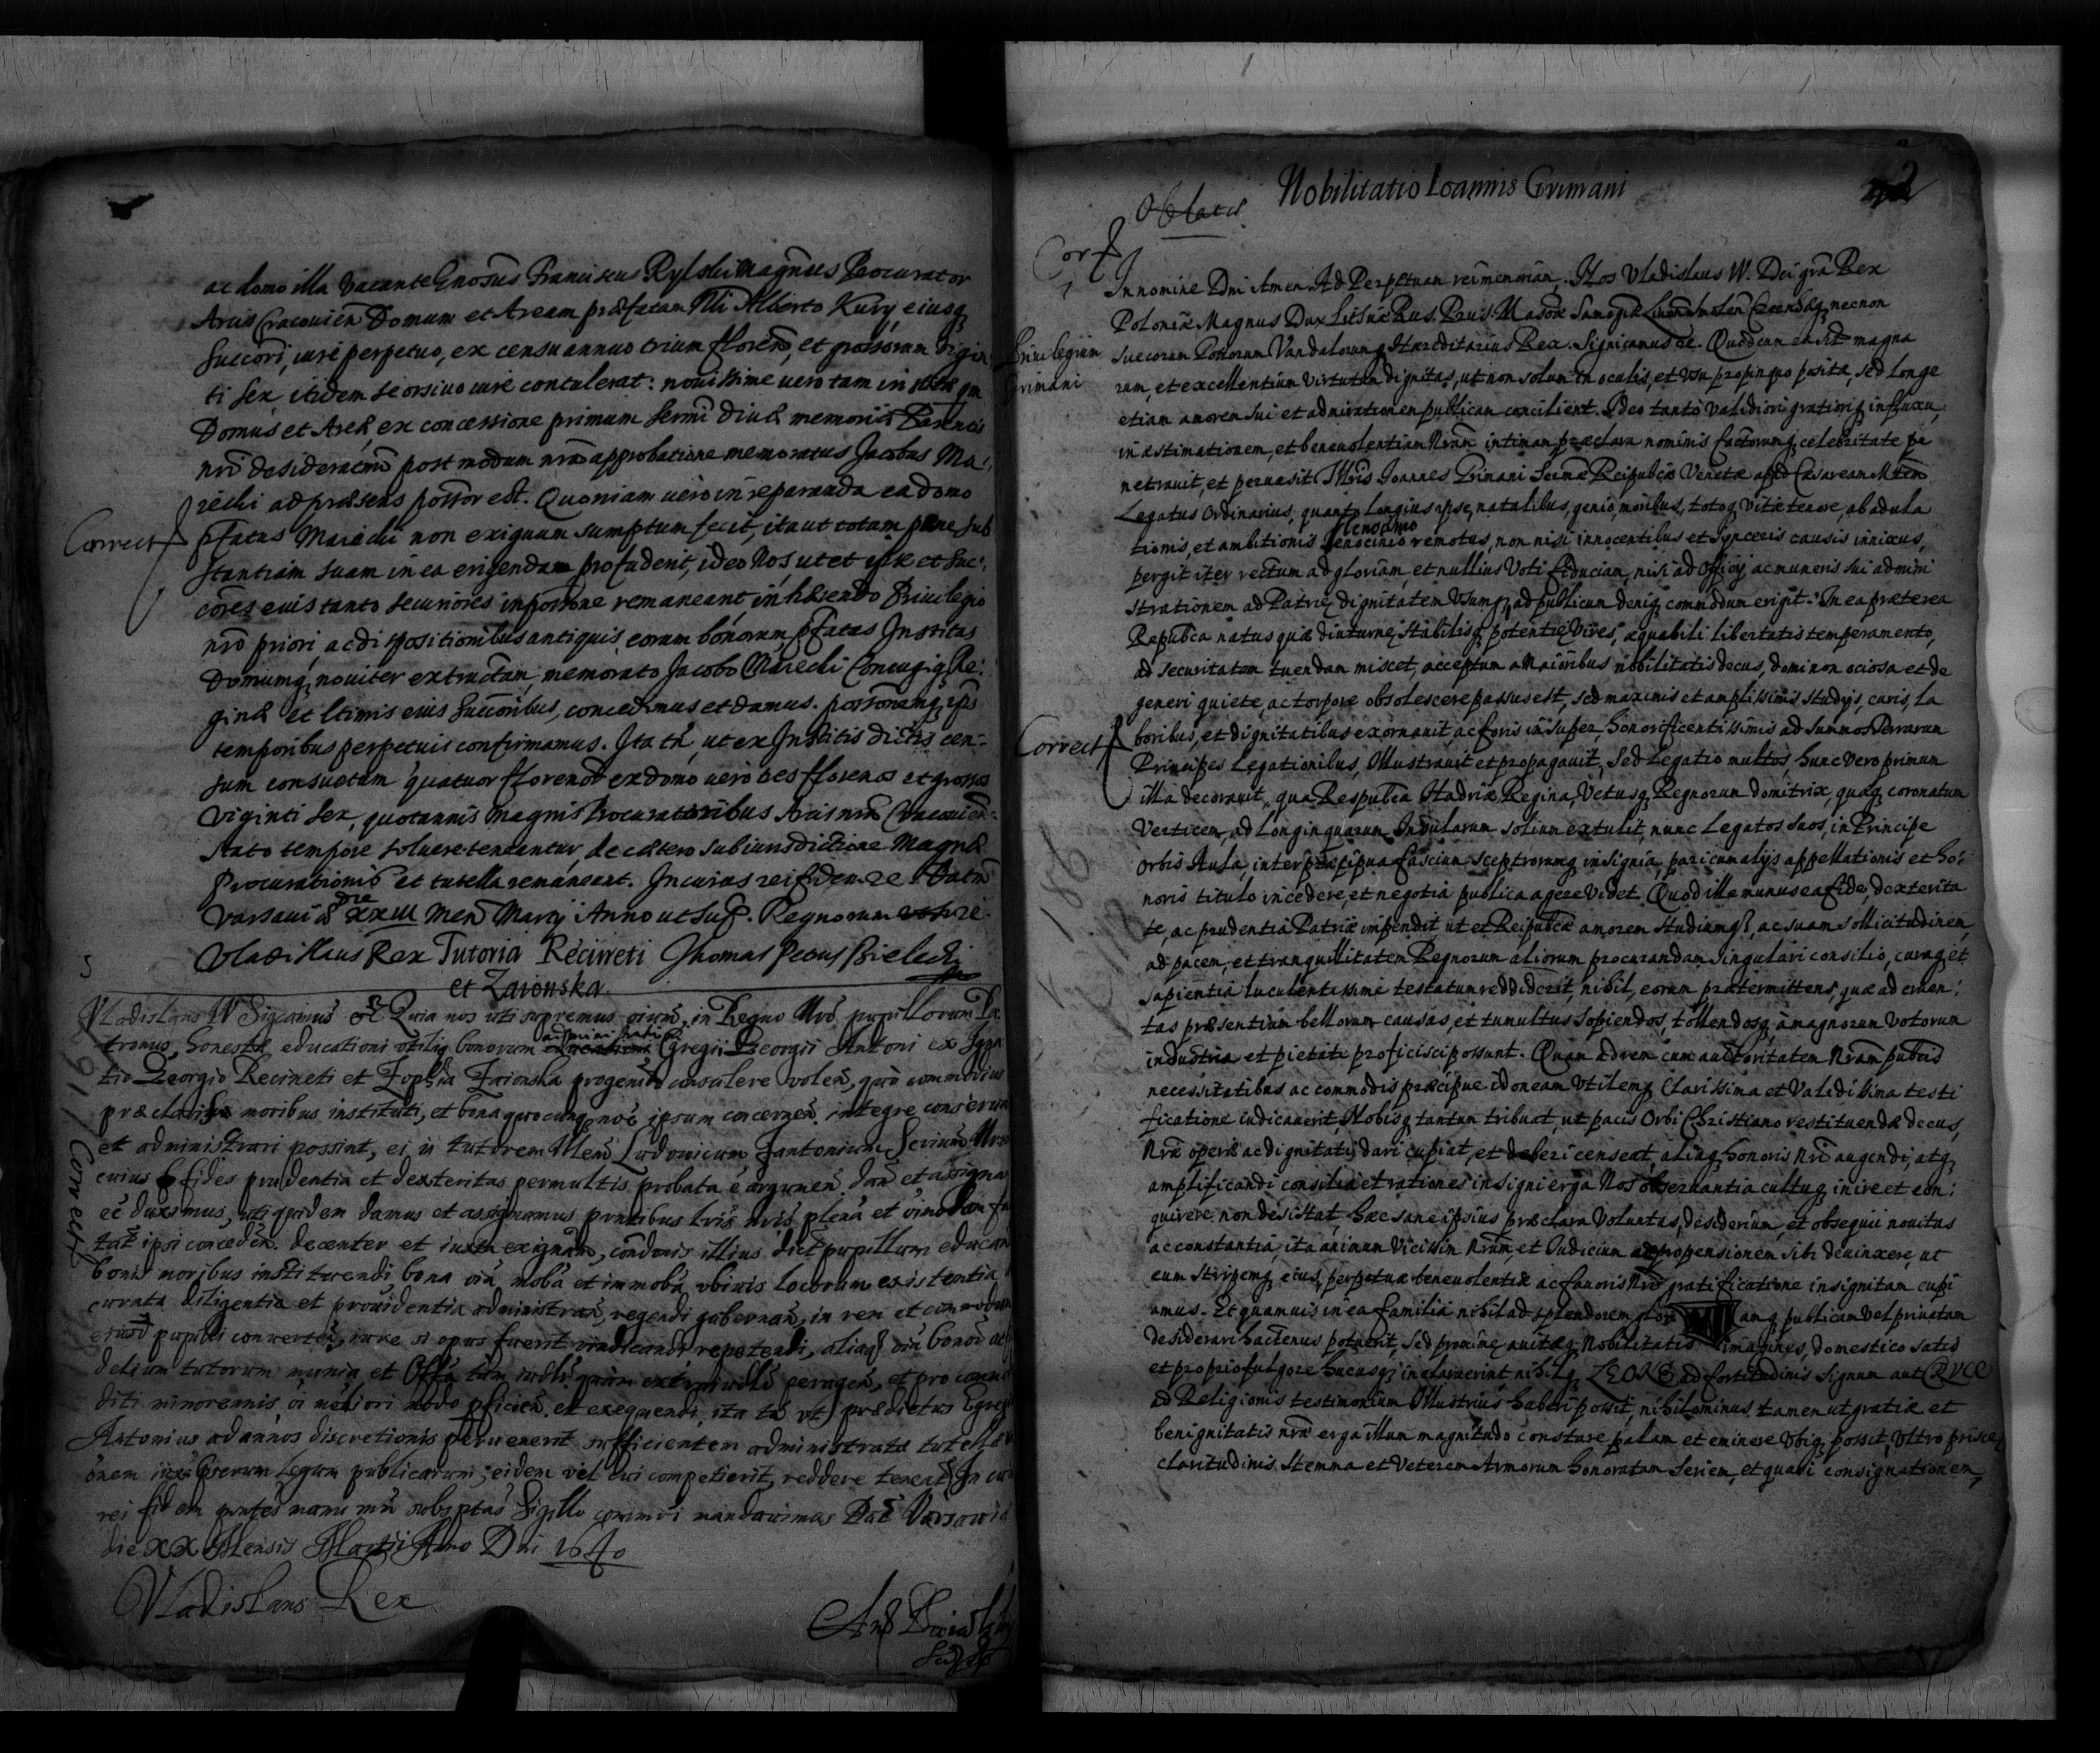 ac domo illa vacante Gnosus Franciscus Rylski Magnus Procurator
Arcis Cracovien Domum et Aream præfatam Nli Alberto Kury, eiusq
Succori, iure perpetuo, ex censu annuo trium floreno, et grossorum vigin
ti sex, itidem seorsivo iure contulerat: novissime vero tam
Domus et Areæ, ex concessione primum Sermi Divæ memoriæ Parentis
nri desideratmi post modum nra approbatione memoratus Jacobus Ma:
recki ad præsens possor est. Quoniam vero in reparanda ea domo
pfatus Marecki non exiguum sumptum fecit, ita ut totam pene sub
stantiam suam in ea erigendam profuderit, ideo Nos, ut et ipse et suc:
cores eius tanto securiores in possone remaneant, inhærendo Privilegio
nro priori, ac dispositionibus antiquis eorum bonorum, pfatas Institas
Domumq noviter extructam, memorato Jacobo Marecki Coniugiq Re:
ginæ et ltimis eius succoribus, concedimus et damus. possonemq ipsis
temporibus perpetuis confirmamus. Ita tn, ut ex Institis dictis cen:
sum consuetum quatuor floreno ex domo vero tres florenos et grossos
viginti sex, quotannis magnis Procuratoribus Arcis nræ Cracovien:
stato tempore solvere teneantur, de cætero sub iurisdictione Magnæ
Procurationis et tutella remaneant. In cuius rei fidem etc. Datum
Varsaviæ die XXIII Men Martÿ Anno ut sup. Regnorum
Vladislaus Rex Tutoria Recineti Thomas Petrus Bielecki
et Zaionska
5
Vladislaus IV Sigcamus &c Quia nos uti supremus oium, in Regno Nro, pupillorum Pa
tronus, honestæ educationi utiliq bonorum administrationi Egregii Georgii Antoni ex
tio Georgio Recineti et Sophia Zaionska progeniti consulere volen, quo commodius
præclaris moribus instituti, et bona quocunq noe ipsum concernen. integre conservari
et administrari possint, ei in tutorem Ludovicum Fantonium
cuius fides prudentia et dexteritas permultis probata e argumen. dan et assignan
ec duximus, uti quidem damus et assignamus pntibus lris nris, plena et oimodam fa
tat ipsi conceden. decenter et iuxta exignam, condonis illius dict pupillum educan
bonis moribus instituendi bona oia, mobi et immobi, ubivis locorum existentia
curata diligentia et providentia administran, regendi gubernan, in rem et commodum
eiusd pupilli converten, iure si opus fuerit vindicandi, repetendi, aliaq oia bonor ac
delium tutorum munia, et Offa tam iudli quam extraiudli peragen, et pro commo
diti minorennis, oi meliori modo pficien et exequendi, ita tn ut praedictus Egregi
Antonius ad annos discretionis pervenerit sufficientem administratæ tutellæ
onem iuxta præscrum legum publicarum, eidem vel cui competierit, reddere teneat. In cu
rei fidem pntes manu nra subsptas Sigillo communiri mandavimus Dat Varsoviæ
die XX Mensis Martii Anno Dni 1640
Vladislaus Rex
Correct
Correct
Nobilitatio Ioannis Grimani
2
Oblata
Cor
Privilegium
Grimani
In nomine Dni Amen. Ad Perpetuam rei memoriam. Nos Vladislaus IV. Dei gra Rex
Poloniæ Magnus Dux Lithuæ Rus. Prus. Masoæ Samogæ Livoniæ Smolen Czernihq necnon
Suecorum Gottorum Vandalorumq Hæreditarius Rex. Significamus &c. Quod cum ea sit magna
rum, et excellentium virtutum dignitas, ut non solum in oculis, et usu propinquo posita, sed longe
etiam amorem sui et admirationem publicam concilient. Ideo tanto validiori gratioriq influxu,
in æstimationem, et benevolentiam Nram intimam præclara nominis factorumq celebritate pe
netravit, et pervasit Illris Joannes Grimani Sermæ Reipublicæ Venetæ apud Cæsaream Mtem
Legatus Ordinarius, quanto longius ipse, natalibus, genio, moribus, totoq vitæ tenore, ab adula
tionis, et ambitionis lenocinio remotus, non nisi innocentibus et synceris causis innixus,
pergit iter rectum ad gloriam, et nullius voti fiduciam, nisi ad Officij ac muneris sui admini
strationem ad Patriæ dignitatem usumq, ad publicum deniq commodum erigit. In ea præterea
Republca natus quæ diuturnæ stabilisq potentiæ vires, æquabili libertatis temperamento,
ad securitatem tuendam miscet, acceptum a Maioribus nobilitatis decus, domi non ociosa et de
generi quiete, ac torpore obsolescere passus est, sed maximis et amplissimis studÿs, curis, la
boribus, et dignitatibus exornavit, ac foris insuper honorificentissimis ad summos Terrarum
Principes Legationibus, illustravit et propagavit. Sed Legatio multos, hunc vero primum
illa decoravit, qua Respublca Hadriæ Regina, Vetusq Regnorum domitrix, quæq coronatum
Verticem, ad longinquarum Insularum solium extulit, nunc Legatos suos, in Principe
Orbis Aula, inter præcipua fascium sceptrorumq insignia, pari cum alÿs appellationis et ho:
noris titulo incedere, et negotia publica agere videt. Quod ille munus ea fide, dexterita
te, ac prudentia Patriæ impendit ut et Reipublcæ amorem studiumq, ac suam sollicitudinem,
ad pacem, et tranquillitatem Regnorum aliorum procurandam singulari consilio, curaq et
sapientia luculentissime testatum reddiderit, nihil, eorum prætermittens, quæ ad cruen:
tas præsentium bellorum causas, et tumultus sopiendos, tollendosq a magnorum votorum
industria et pietate proficisci possunt. Quam ad rem cum auctoritatem Nram publcis
necessitatibus ac commodis præcipue idoneam utilemq Clarissima et Validissima testi
ficatione iudicaverit, Nobisq tantum tribuat, ut pacis Orbi Christiano restituendæ decus,
Nræ operæ ac dignitati dari cupiat, et deberi censeat, aliaq honoris Nri augendi, atq
amplificandi consilia et rationes insigni erga Nos observantia cultuq inire et con:
quirere non desistat, hæc sane ipsius præclara voluntas, desiderium, et obsequii novitas
ac constantia, ita animum vicissim Nrum, et Iudicium ac propensionem sibi devinxere, ut
eum stirpemq eius, perpetuæ benevolentiæ ac favoris Nri gratificatione insignitam cupi
amus. Et quamvis in ea familia nihil ad splendorem amq publicam vel privatam
desiderari hactenus potuerit, sed proximæ avitæq Nobilitatis imagines, domestico satis
et proprio fulgore hucusq inclaruerint nihilq LEONE ad fortitudinis signum aut CRVCE
ad Religionis testimonium Illustrius haberi possit, nihilominus tamen ut gratiæ et
benignitatis nræ erga illum magnitudo constare palam et eminere ubiq possit, ultro priscæ
claritudinis Stemma et Veterem Armorum honoratam Seriem, et quasi consignationem,
Correct